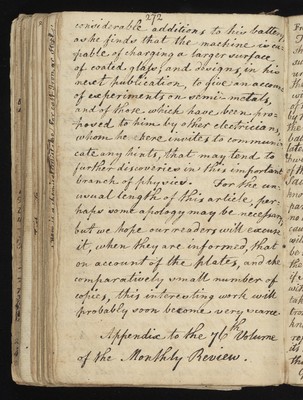 272
considerable additions to his battery,
as he finds that the machine is ca-
pable of charging a larger surface
of coated glass, and designs, in his
next publication, to give an account
of experiments on semi-metals,
and of those which have been pro-
posed to him by other electricians,
whom he here invites to communi-
cate any hints, that may tend to
further discoveries in this important
branch of physics. For the un-
usual length of this article, per-
haps some apology may be necessary,
but we hope our readers will excuse
it, when they are informed, that
on account of the plates, and the
comparatively small number of
copies, this interesting work will
probably soon become very scarce.
Appendix to the 76th Volume
of the Monthly Review.